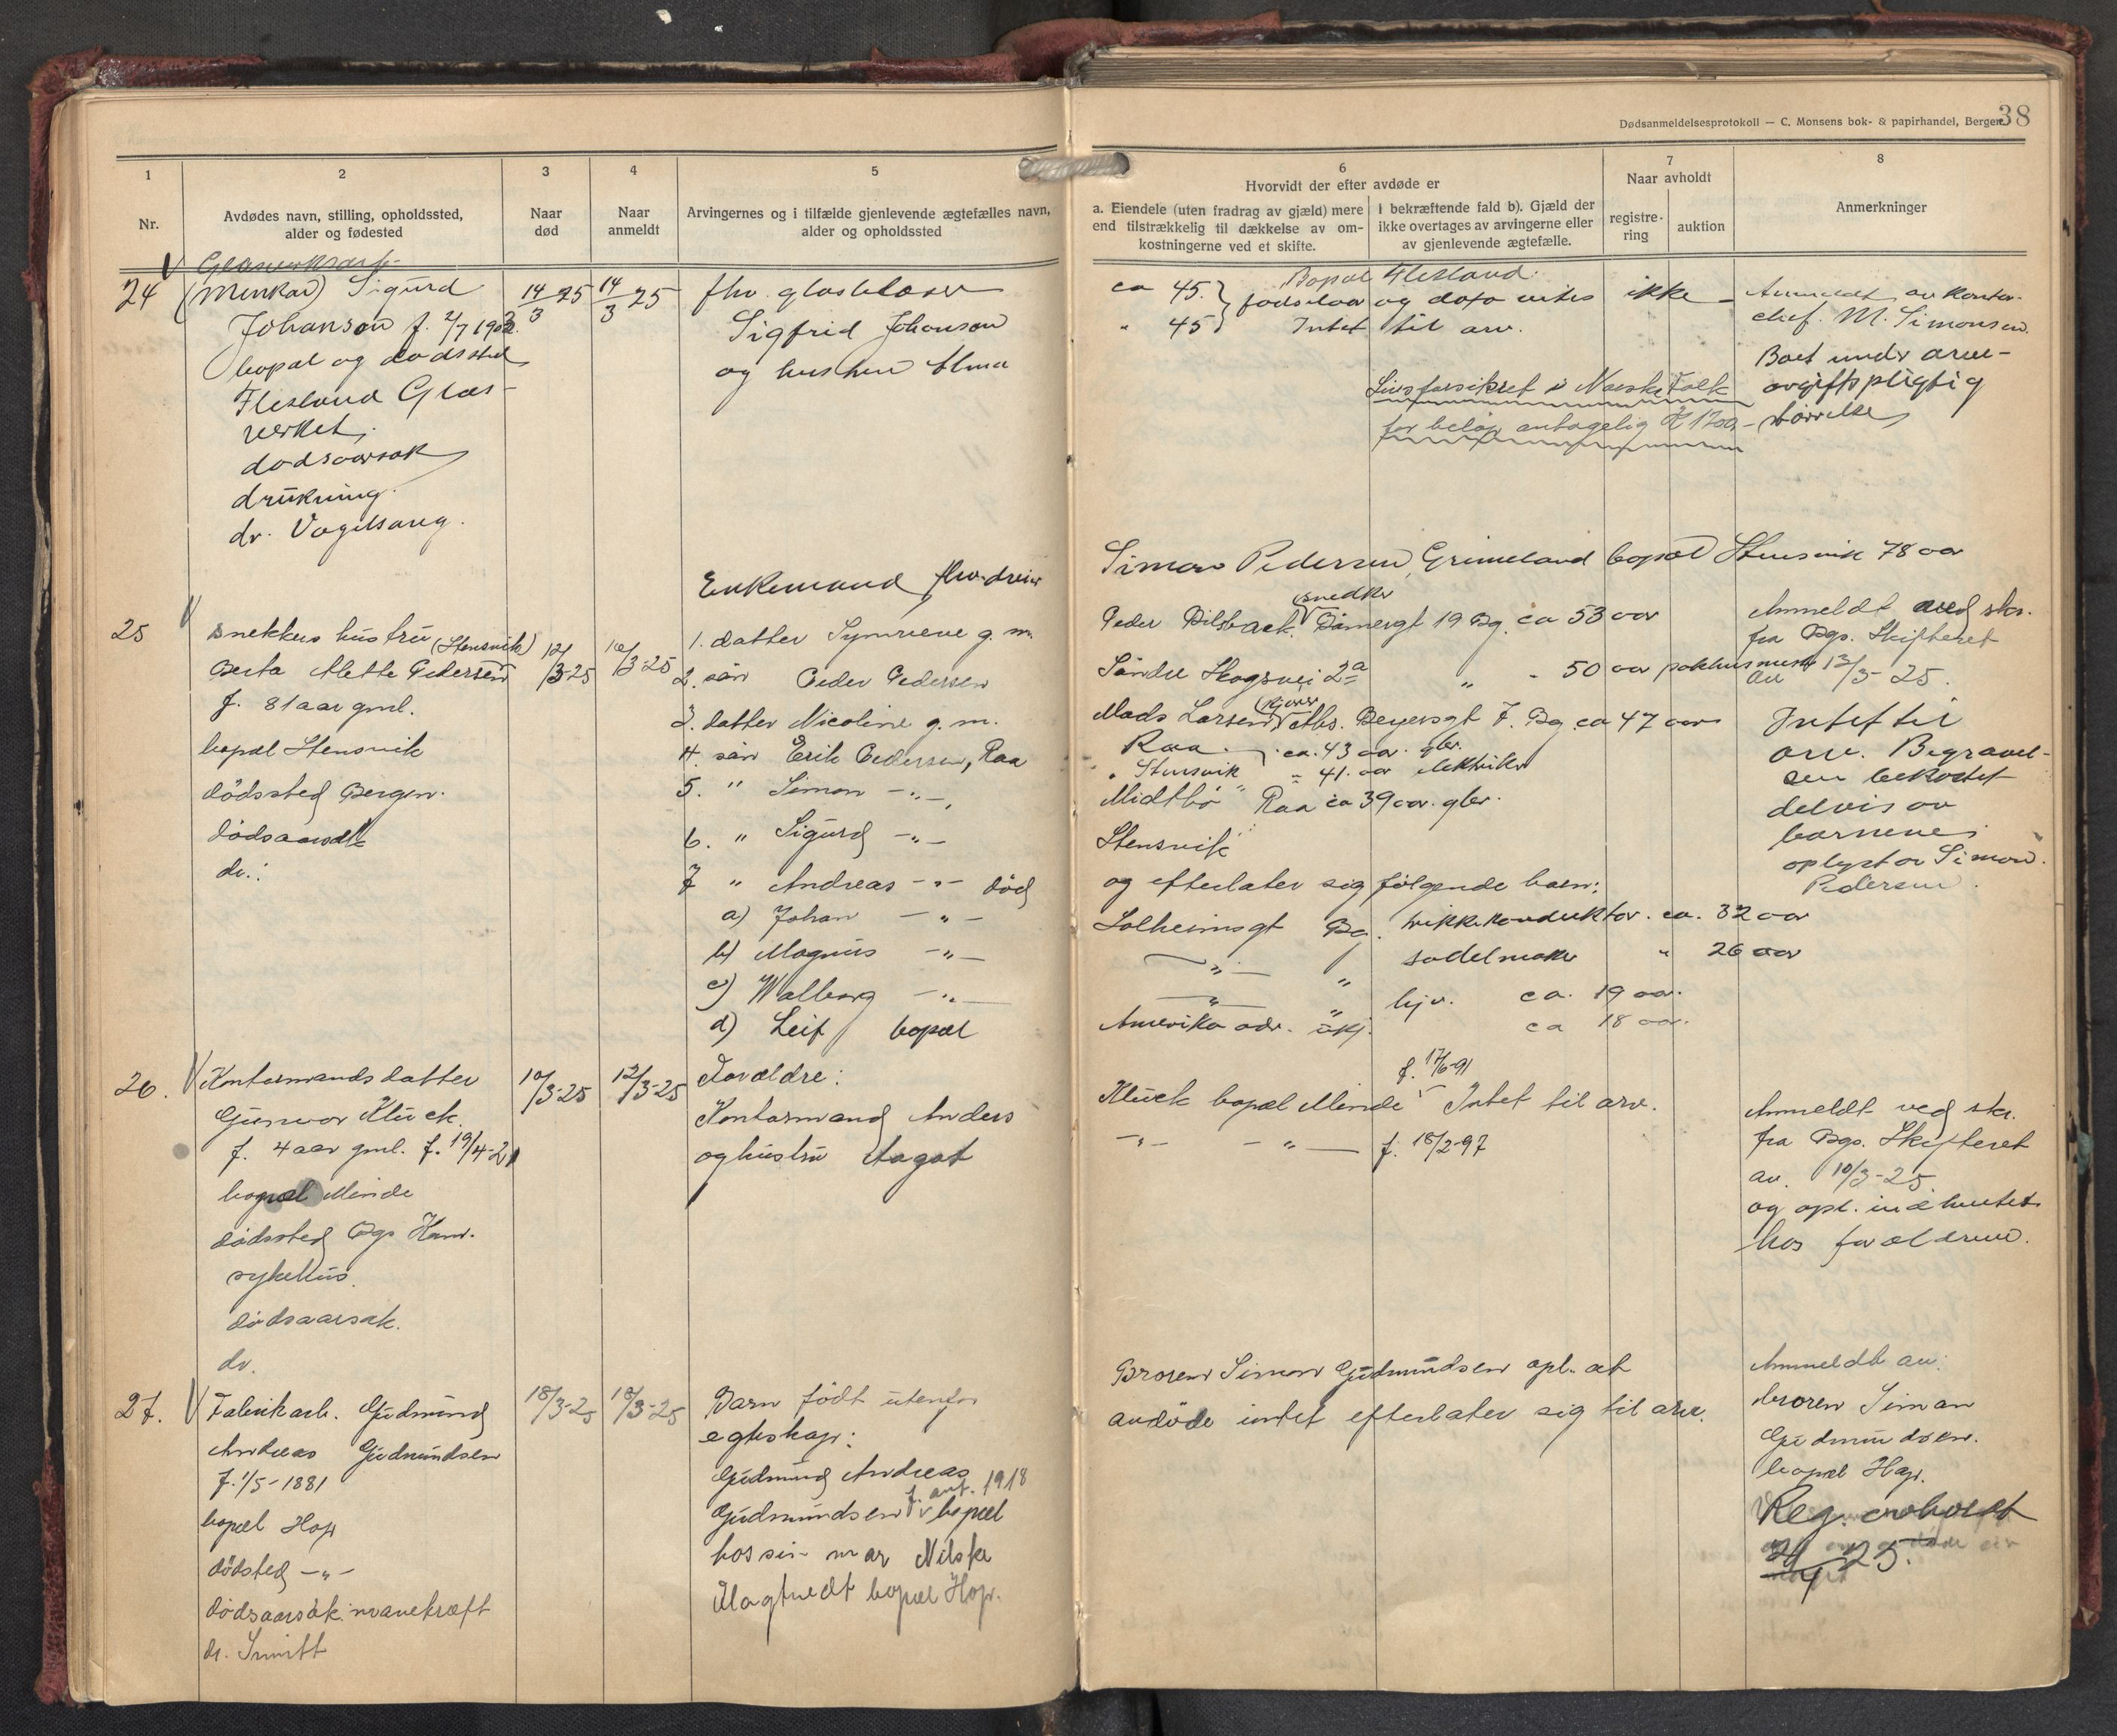 38
Dødsanmeldelsesprotokoll — C. Monsens bok- & papirhandel, Bergen.
1
2
3
4
5
Nr.
Avdødes navn, stilling, opholdssted,
alder og fødested
Naar
død
Naar
anmeldt
Arvingernes og i tilfælde gjenlevende ægtefælles navn,
alder og opholdssted
6
Hvorvidt der efter avdøde er
a. Eiendele (uten fradrag av gjæld) mere
end tilstrækkelig til dækkelse av om-
kostningerne ved et skifte.
I bekræftende fald b). Gjæld der
ikke overtages av arvingerne eller
av gjenlevende ægtefælle.
7
Naar avholdt
registre-
ring
auktion
8
Anmerkninger
Glasverksarb.
24 Sigurd
Johanson f. 2/7
bopæl og dødssted
Flesland Glas-
verket,
dødsaarsak
drukning.
dr. Vogelsang.
14/3 25
14/3 25
fhv. glasblaser
Sigfrid Johanson
og hustru Alma
ca 45.
" 45
Bopæl Flesland.
fødselsaar og dato vites ikke
Intet til arv.
Livsforsikret i Norske Folk
for beløp antagelig Kr 1700,-
Anmeldt av kontor-
chef. M. Simonsen.
Boet under arve-
avgiftspligtig
størrelse
Enkemand fhv. dreier
Simon Pedersen Grimeland bopæl Stensvik 78 aar
25
Snekkers hustru (Stensvik)
Berta Mette Pedersen
f. 81 aar gml.
bopæl Stensvik
dødssted Bergen.
dødsaarsak
dr.:
12/3-25
16/3-25
1. datter g. m.
2. søn Peder Pedersen
3. datter Nicoline g. m.
4. søn Erik Pedersen, Raa
5. " Simon -"-
6. " Sigurd -"-
7 " Andreas -"- død
a) Johan -"-
b) Magnus -"-
c) Walborg -"-
d) Leif bopæl
snedker
Peder 19 Bg. ca 53 aar
Søndre Skogsvei 2a " - 50 aar pakhusmester
Mads Larsen Bg. ca 47 aar
Raa ca. 43 aar. gbr.
" Stensvik " 41. aar elektriker
Midtbø Raa ca 39 aar. gbr.
Stensvik
og efterlater sig følgende barn:
Solheimsgt Bg. trikkekonduktør. ca. 32 aar
-"- " sadelmaker " 26 aar
-"- " hjv. ca. 19 aar.
Amerika adr. ukj. ca 18 aar.
Anmeldt ved skr.
fra Bgs. Skifteret
av 13/3-25.
Intet til
arv. Begravel-
sen bekostet
delvis av
barnene
oplyst av Simon
Pedersen.
26.
Kontormands datter
Gunvor Kluck
f. 4 aar gml. f. 19/4-21
bopæl Minde
dødssted Bgs Kom.
sykehus.
dødsaarsak.
dr.
10/3-25
12/3-25
Forældre:
Kontormand Anders
og hustru Aagot
f. 17/6-91
Kluck bopæl Minde Intet til arv.
-"- -"- f. 18/2-97
Anmeldt ved skr.
fra Bgs. Skifteret
av. 10/3-25
og opl. indhentet
hos forældrene.
27.
Fabrikarb. Gudmund
Andreas Gudmundsen
f. 1/5-1881
bopæl Hop
dødssted -"-
dødsaarsak: mavekræft
dr. Smitt
18/3-25
18/3-25
Barn født utenfor
egteskap:
Gudmund Andreas
f. ant. 1918
Gudmundsen bopæl
hos sin mor Nilska
bopæl Hop.
Broren Simon Gudmundsen opl. at
avdøde intet efterlater sig til arv.
Anmeldt av:
broren Simon
Gudmundsen.
bopæl Hop.
Reg. avholdt
25.